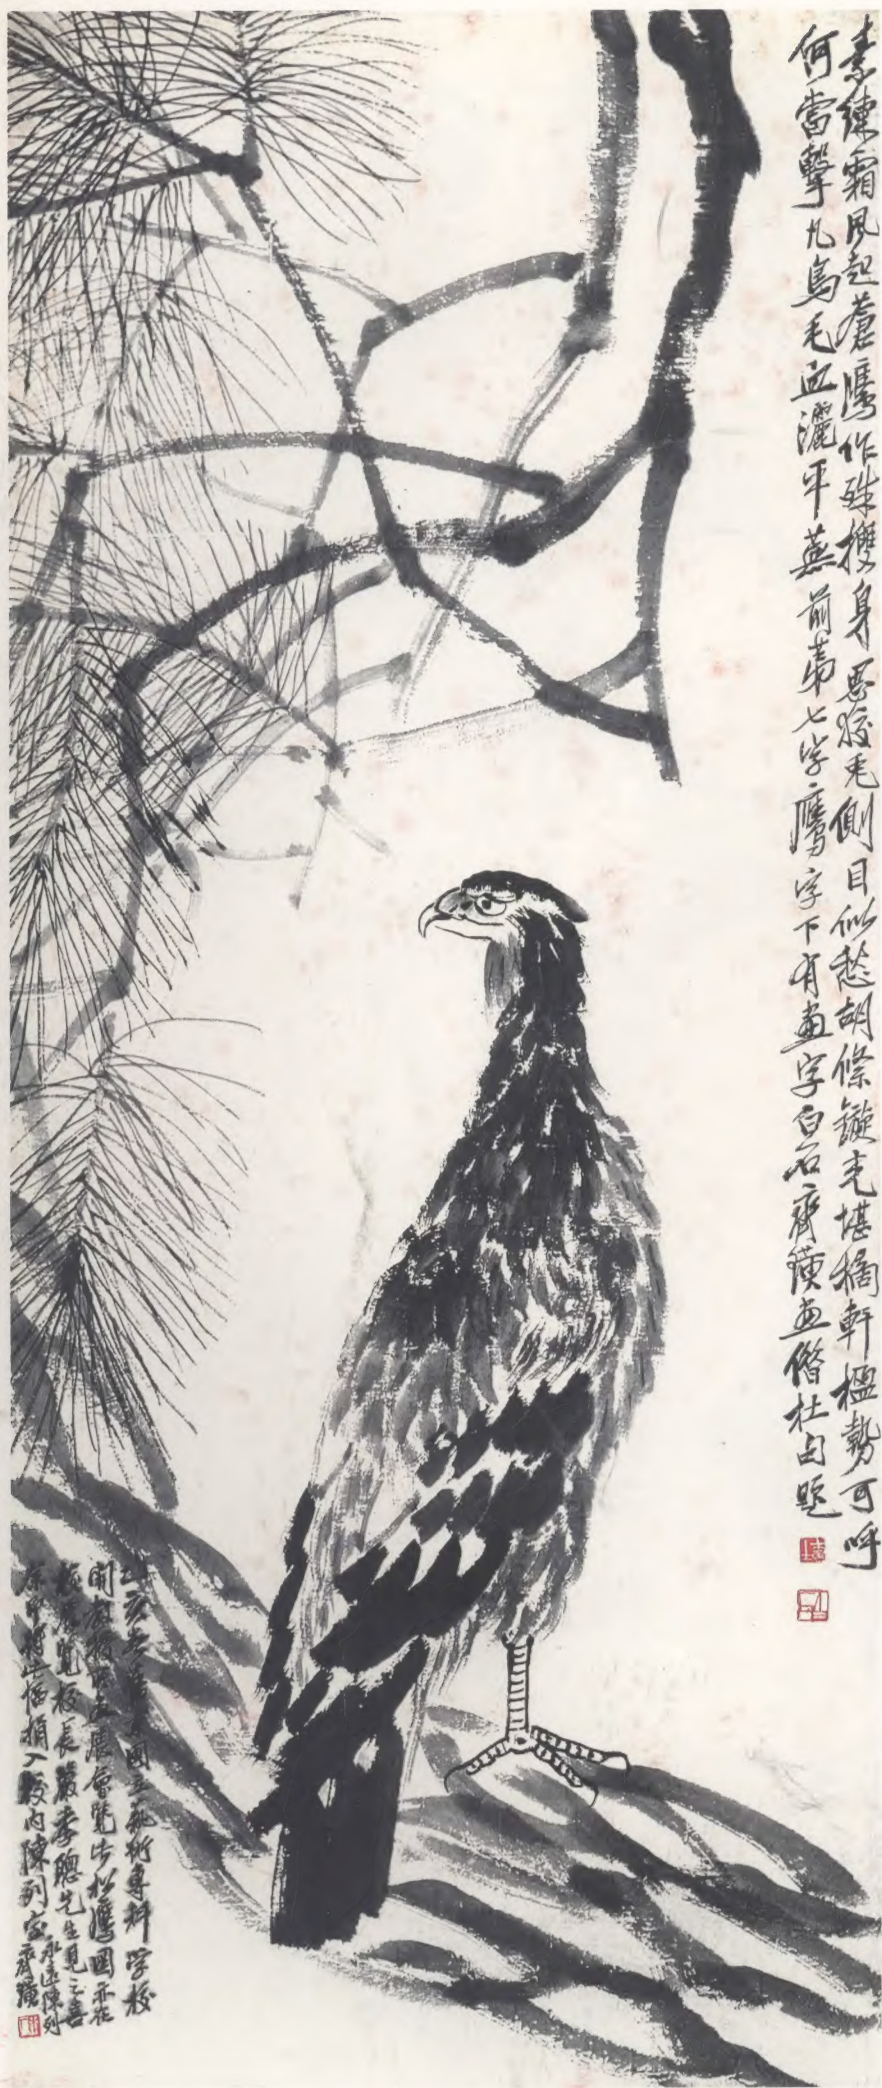 素練霜風起蒼鷹作殊㩳身思狡兔側目似愁胡絛鏇光堪摘軒楹勢可呼
何當擊凡鳥毛血灑平蕪前第七字鷹字下有畫字白石齊璜畫借杜句題
亥 國立藝術專科學校
開 展會覽此松鷹圖亦在
校展覽校長嚴季聰先生見之喜
余即將此幅捐入校內陳列室永遠陳列
齊璜